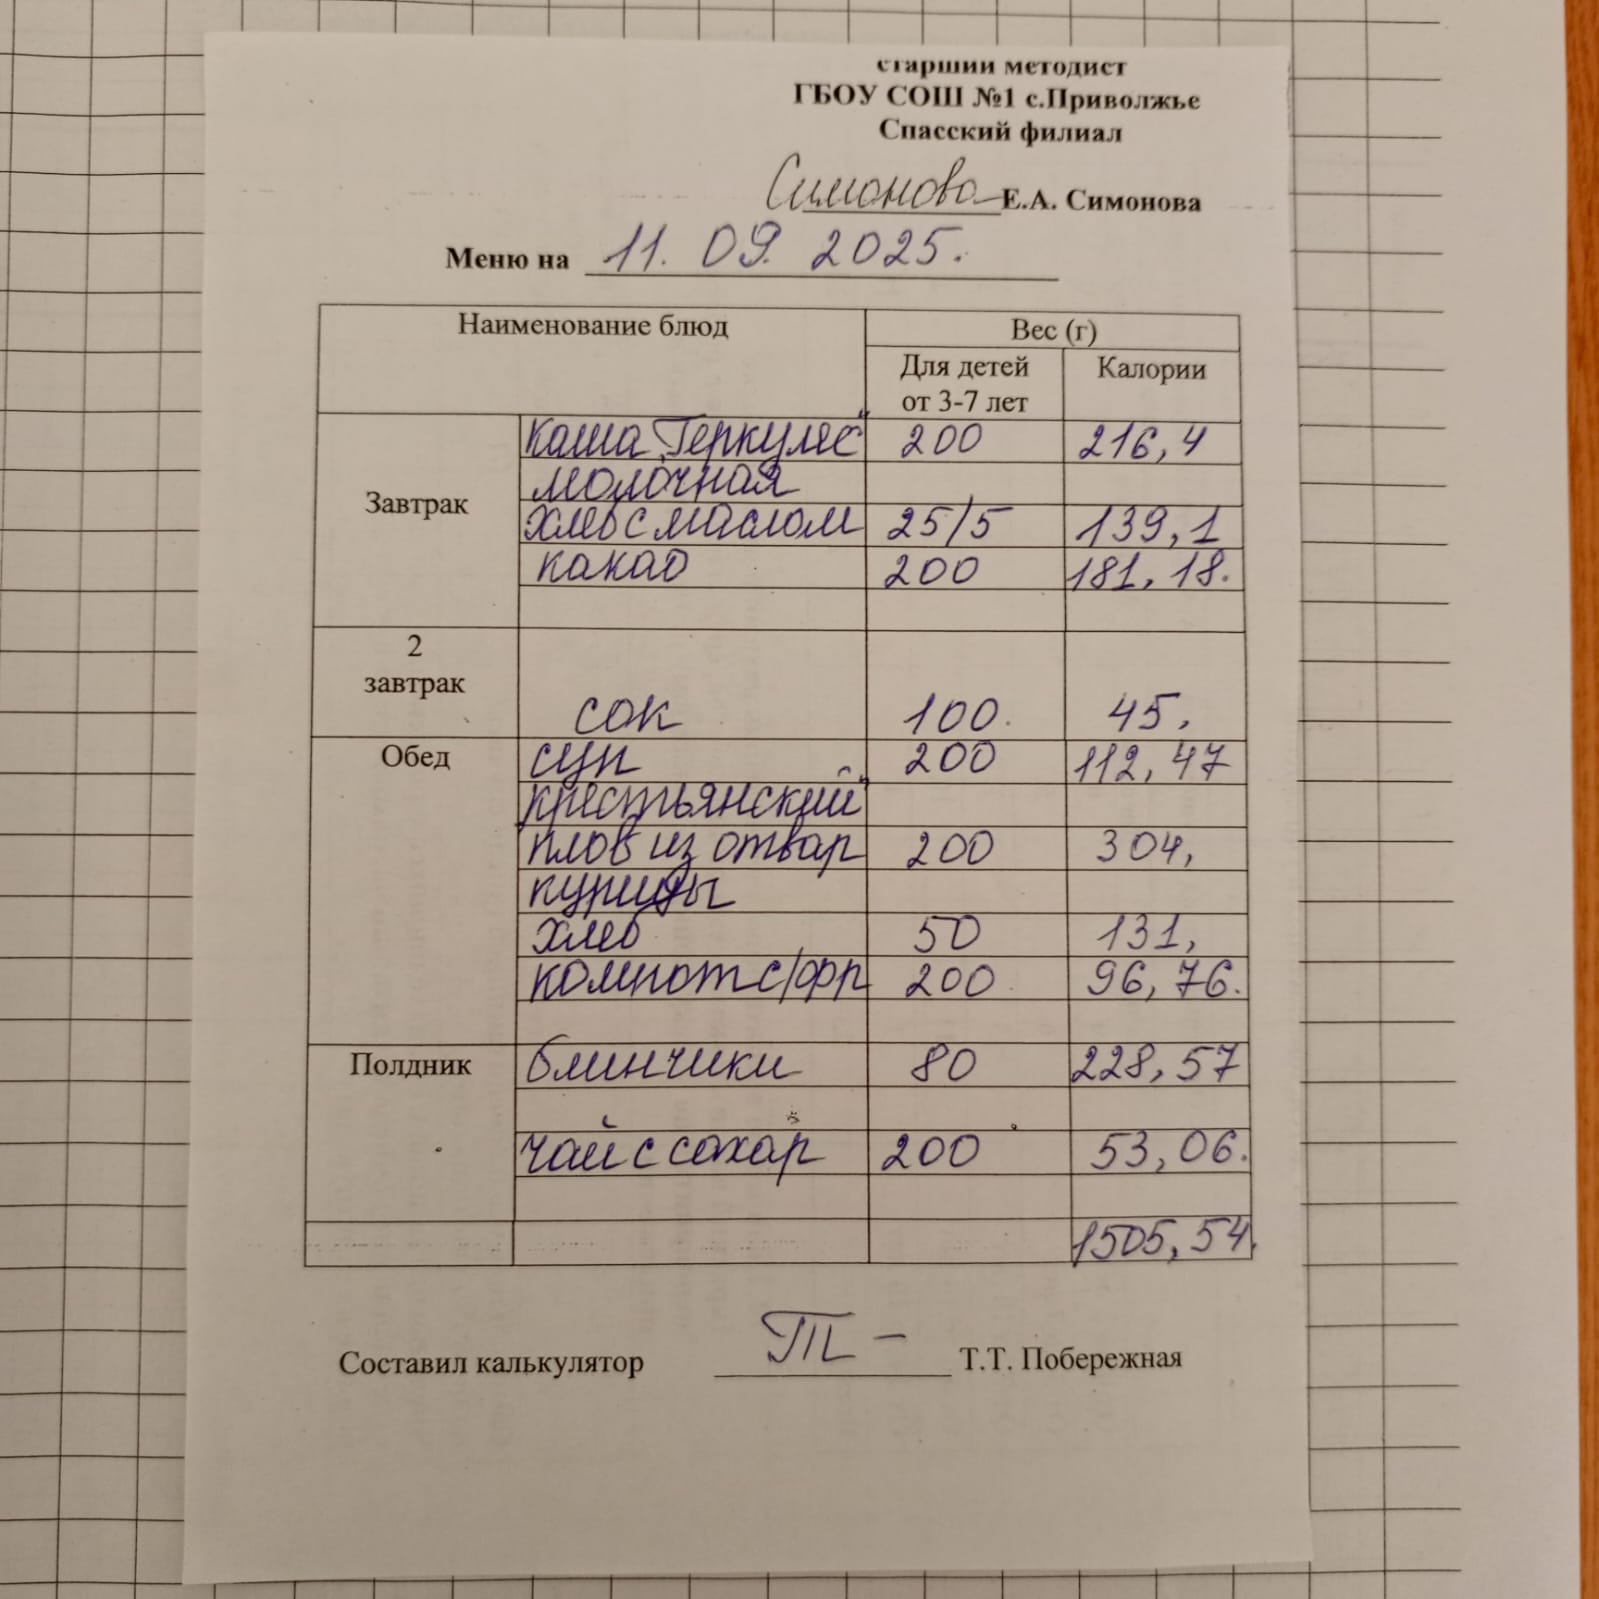 старший методист
ГБОУ СОШ №1 с.Приволжье
Спасский филиал
Симонова Е.А. Симонова
Меню на 11. 09. 2025.
Наименование блюд Вес (г)
Для детей от 3-7 лет Калории
Завтрак каша „Геркулес" 200 216,4
молочная
хлеб с маслом 25/5 139,1
какао 200 181,18.
2 завтрак сок 100. 45,
Обед суп 200 112,47
крестьянский"
плов из отвар 200 304,
курицы
хлеб 50 131,
компот с/фр 200 96,76.
Полдник блинчики 80 228,57
чай с сахар 200 53,06.
1505,54.
Составил калькулятор Т.Т. Побережная